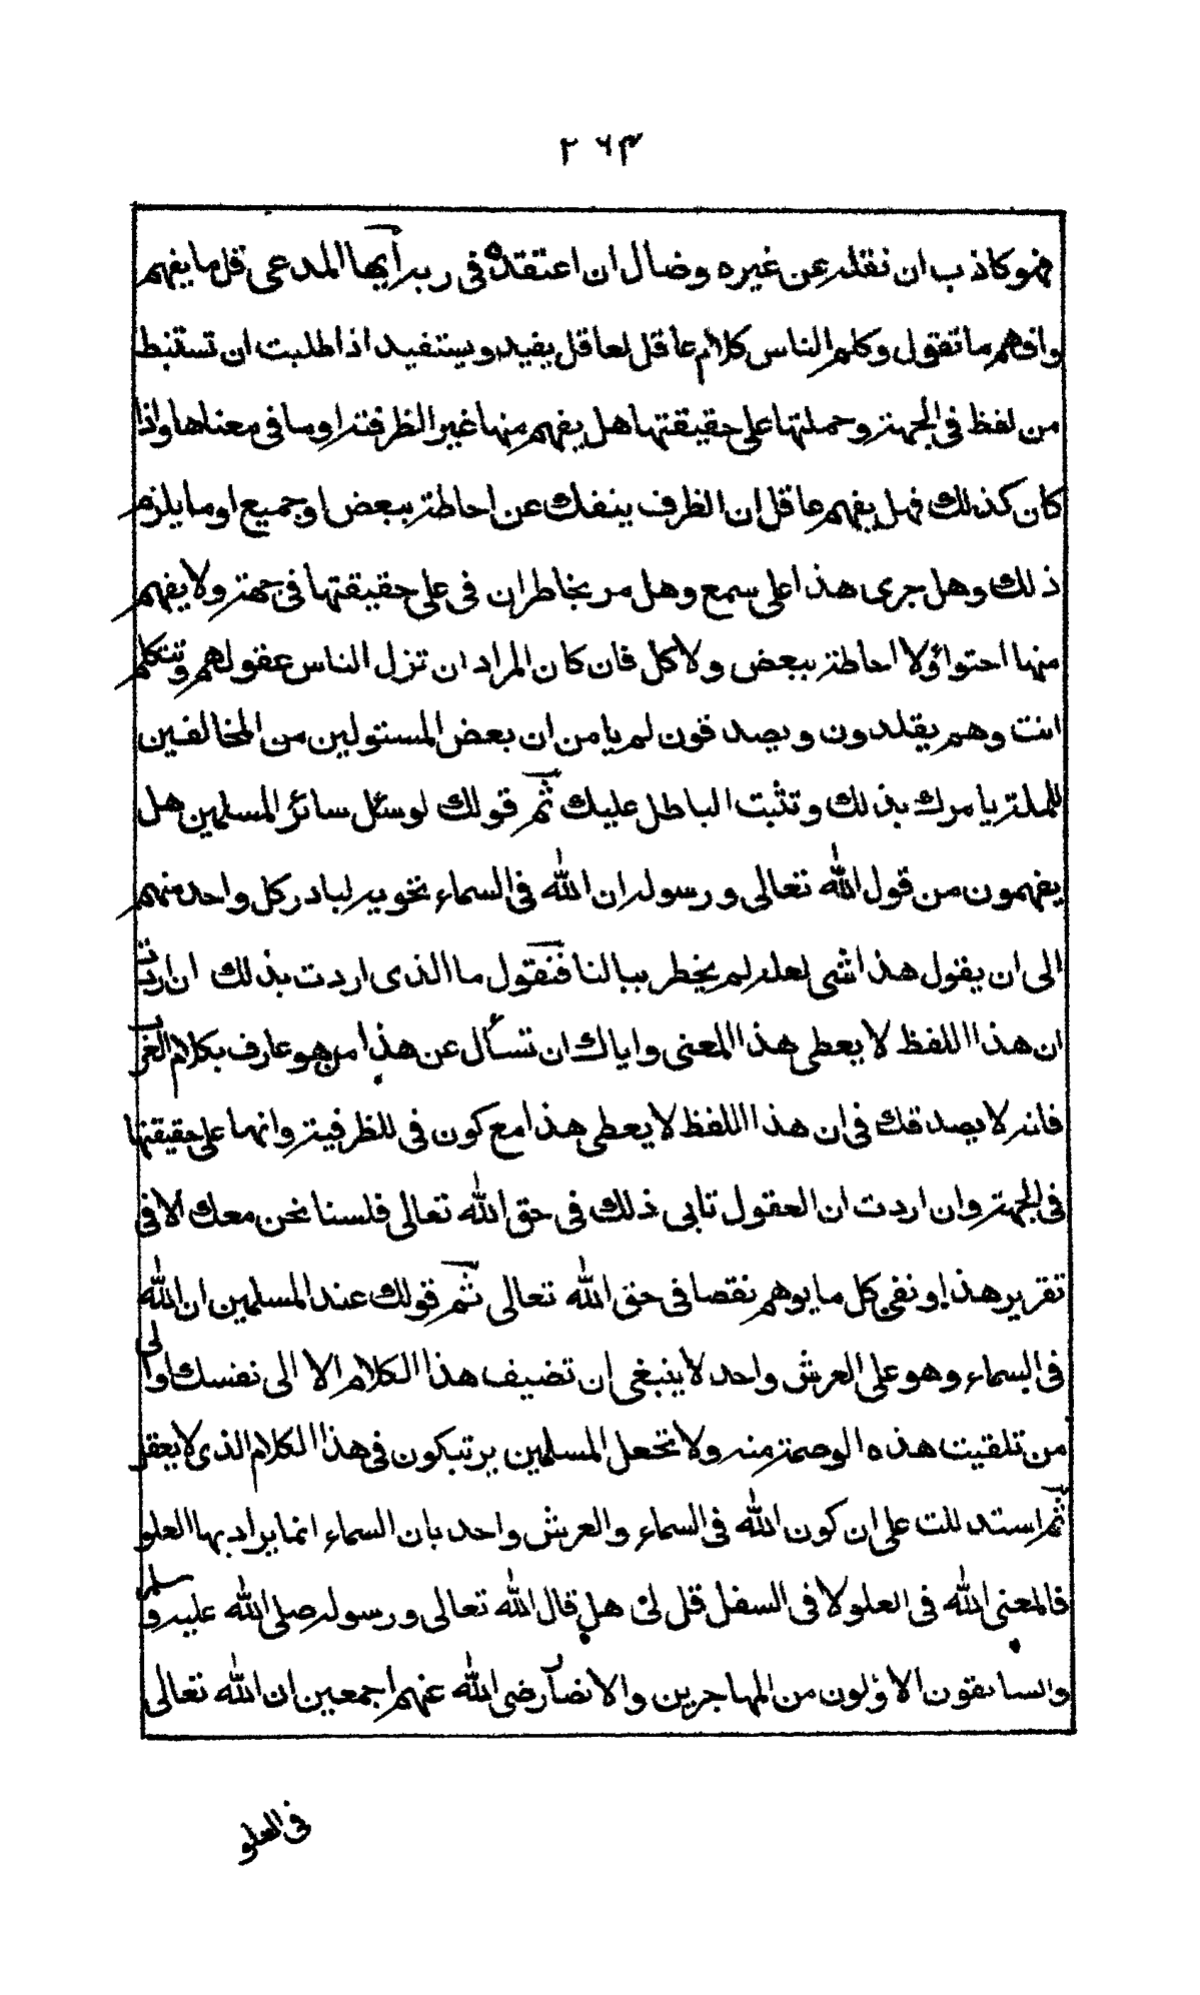 ٢٦٣
فهو كاذب ان نقله عن غيره وضال ان اعتقده فى ربه أيها المدعى قل ما يفهم
وافهم ما تقول وكلم الناس كلام عاقل لعاقل يفيد ويستفيد اذا طلبت ان تستنبط
من لفظ فى الجهة وحملتها على حقيقتها هل يفهم منها غير الظرفية او ما فى معناها واذا
كان كذلك فهل يفهم عاقل ان الظرف ينفك عن احاطة ببعض او جميع او ما يلزم
ذلك وهل جرى هذا على سمع وهل مر بخاطر ان فى على حقيقتها فى جهة ولا يفهم
منها احتواؤ ولا احاطة ببعض ولا كل فان كان المراد ان تزل الناس عقولهم وتتكلم
انت وهم يقلدون ويصدقون لم يامن ان بعض المستولين من المخالفين
للملة يامرك بذلك وتثبت الباطل عليك ثم قولك لو سئل سائر المسلمين هل
يفهمون من قول الله تعالى ورسوله ان الله فى السماء تحويه لبادر كل واحد منهم
الى ان يقول هذا شى لعله لم يخطر ببالنا فنقول ما الذى اردت بذلك ان اردت
ان هذا اللفظ لا يعطى هذا المعنى واياك ان تسأل عن هذا من هو عارف بكلام العرب
فانه لا يصدقك فى ان هذا اللفظ لا يعطى هذا مع كون فى للظرفية وانها على حقيقتها
فى الجهة وان اردت ان العقول تابى ذلك فى حق الله تعالى فلسنا نحن معك الا فى
تقرير هذا ونفى كل ما يوهم نقصا فى حق الله تعالى ثم قولك عند المسلمين ان الله
فى السماء وهو على العرش واحد لا ينبغى ان تضيف هذا الكلام الا الى نفسك او الى
من تلقيت هذه الوصمة منه ولا تجعل المسلمين يرتبكون فى هذا الكلام الذى لا يعقل
ثم استدللت على ان كون الله فى السماء والعرش واحد بان السماء انما يراد بها العلو
فالمعنى الله فى العلو لا فى السفل قل لى هل قال الله تعالى ورسوله صلى الله عليه وسلم
والسابقون الاولون من المهاجرين والانصار رضى الله عنهم اجمعين ان الله تعالى
فى العلو